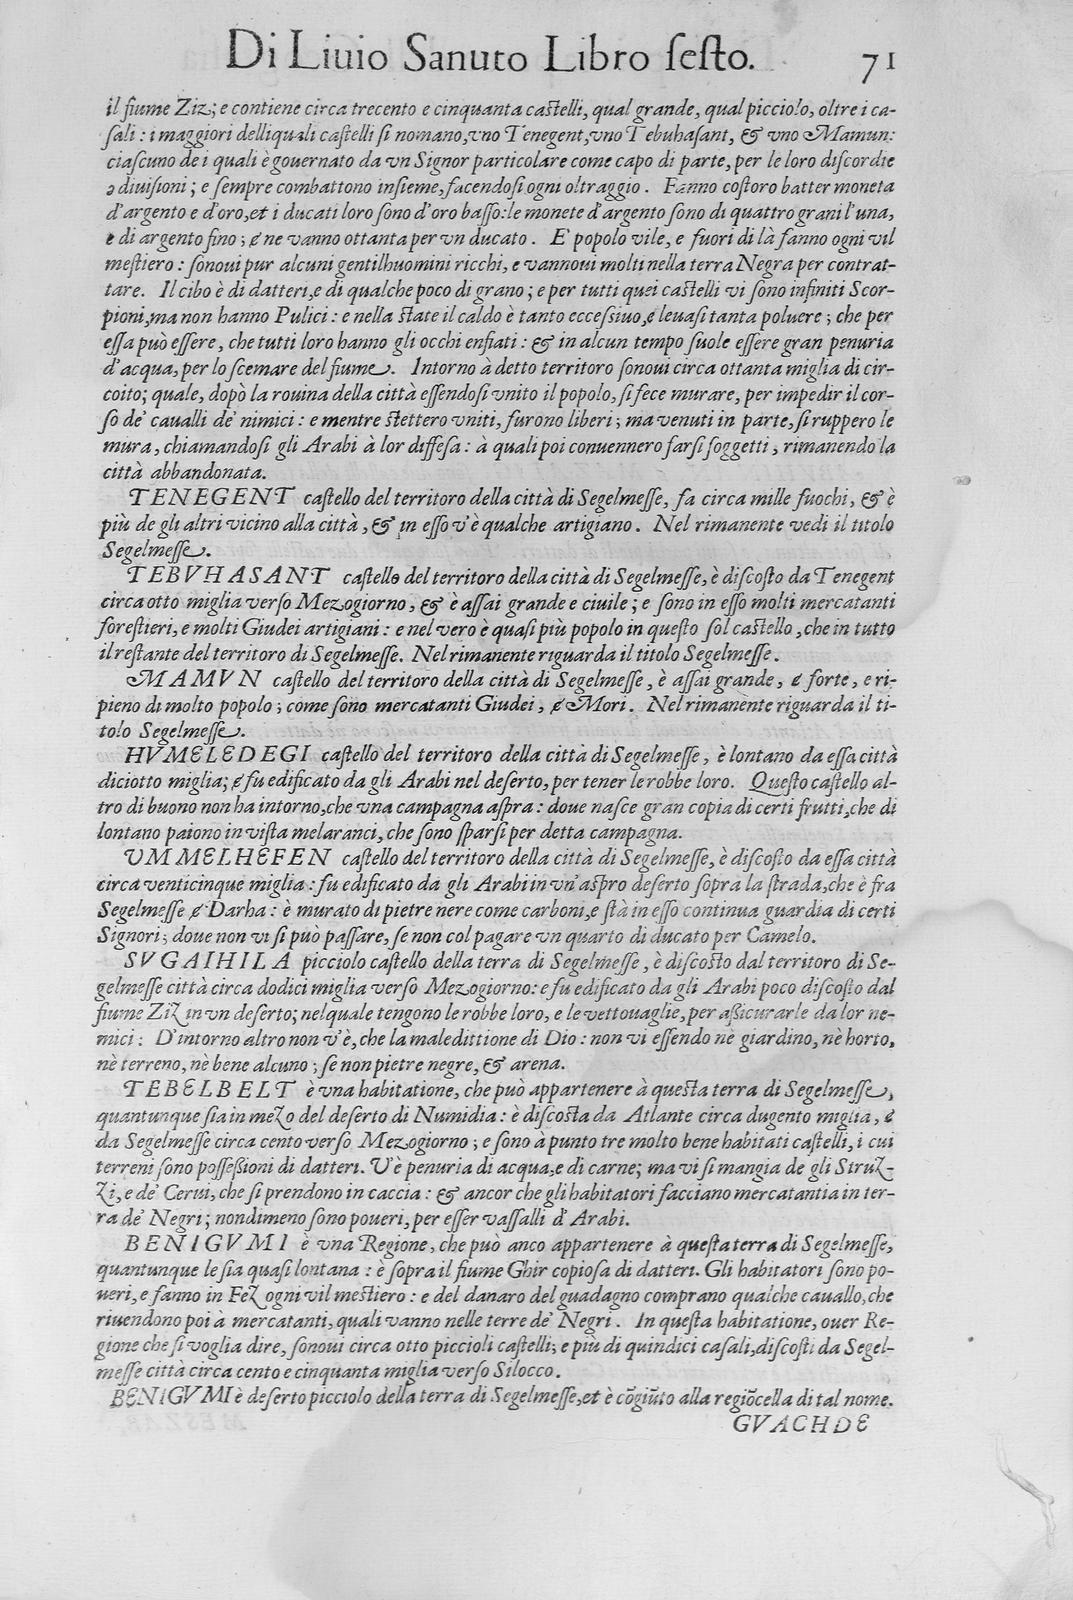 Di Liuio Sanuto Libro sesto. 71
il fiume Ziz; e contiene circa trecento e cinquanta castelli, qual grande, qual picciolo, oltre i ca-
sali: i maggiori delli quali castelli si nomano, vno Tenegent, vno Tebuhasant, & vno Mamun:
ciascuno de i quali è gouernato da vn Signor particolare come capo di parte, per le loro discordie
e diuisioni; e sempre combattono insieme, facendosi ogni oltraggio. Fanno costoro batter moneta
d'argento e d'oro, et i ducati loro sono d'oro basso: le monete d'argento sono di quattro grani l'una,
e di argento fino; & ne vanno ottanta per vn ducato. E' popolo vile, e fuori di là fanno ogni vil
mestiero: sonoui pur alcuni gentilhuomini ricchi, e vannoui molti nella terra Negra per contrat-
tare. Il cibo è di datteri, e di qualche poco di grano; e per tutti quei castelli vi sono infiniti Scor-
pioni, ma non hanno Pulici: e nella state il caldo è tanto eccessiuo, & leuasi tanta poluere; che per
essa può essere, che tutti loro hanno gli occhi enfiati: & in alcun tempo suole essere gran penuria
d'acqua, per lo scemare del fiume. Intorno à detto territoro sonoui circa ottanta miglia di cir-
coito; quale, dopò la rouina della città essendosi vnito il popolo, si fece murare, per impedir il cor-
so de' caualli de' nimici: e mentre stettero vniti, furono liberi; ma venuti in parte, si ruppero le
mura, chiamandosi gli Arabi à lor diffesa: à quali poi conuennero farsi soggetti, rimanendo la
città abbandonata.
TENEGENT castello del territoro della città di Segelmesse, fa circa mille fuochi, & è
più de gli altri vicino alla città, & in esso v'è qualche artigiano. Nel rimanente vedi il titolo
Segelmesse.
TEBVHASANT castello del territoro della città di Segelmesse, è discosto da Tenegent
circa otto miglia verso Mezogiorno, & è assai grande e ciuile; e sono in esso molti mercatanti
forestieri, e molti Giudei artigiani: e nel vero è quasi più popolo in questo sol castello, che in tutto
il restante del territoro di Segelmesse. Nel rimanente riguarda il titolo Segelmesse.
MAMVN castello del territoro della città di Segelmesse, è assai grande, & forte, e ri-
pieno di molto popolo; come sono mercatanti Giudei, & Mori. Nel rimanente riguarda il ti-
tolo Segelmesse.
HVMELEDEGI castello del territoro della città di Segelmesse, è lontano da essa città
diciotto miglia; & fu edificato da gli Arabi nel deserto, per tener le robbe loro. Questo castello al-
tro di buono non ha intorno, che vna campagna aspra: doue nasce gran copia di certi frutti, che di
lontano paiono in vista melaranci, che sono sparsi per detta campagna.
VMMELHEFEN castello del territoro della città di Segelmesse, è discosto da essa città
circa venticinque miglia: fu edificato da gli Arabi in vn'aspro deserto sopra la strada, che è fra
Segelmesse & Darha: è murato di pietre nere come carboni, e stà in esso continua guardia di certi
Signori; doue non vi si può passare, se non col pagare vn quarto di ducato per Camelo.
SVGAIHILA picciolo castello della terra di Segelmesse, è discosto dal territoro di Se-
gelmesse città circa dodici miglia verso Mezogiorno: e fu edificato da gli Arabi poco discosto dal
fiume Ziz in vn deserto; nel quale tengono le robbe loro, e le vettouaglie, per assicurarle da lor ne-
mici: D'intorno altro non v'è, che la maledittione di Dio: non vi essendo nè giardino, nè horto,
nè terreno, nè bene alcuno; se non pietre negre, & arena.
TEBELBELT è vna habitatione, che può appartenere à questa terra di Segelmesse,
quantunque sia in mezo del deserto di Numidia: è discosta da Atlante circa dugento miglia, &
da Segelmesse circa cento verso Mezogiorno; e sono à punto tre molto bene habitati castelli, i cui
terreni sono possessioni di datteri. V'è penuria di acqua, e di carne; ma vi si mangia de gli Struz-
zi, e de' Cerui, che si prendono in caccia: & ancor che gli habitatori facciano mercatantia in ter-
ra de' Negri; nondimeno sono poueri, per esser vassalli d'Arabi.
BENIGVMI è vna Regione, che può anco appartenere à questa terra di Segelmesse,
quantunque le sia quasi lontana: è sopra il fiume Ghir copiosa di datteri. Gli habitatori sono po-
ueri, e fanno in Fez ogni vil mestiero: e del danaro del guadagno comprano qualche cauallo, che
riuendono poi à mercatanti, quali vanno nelle terre de' Negri. In questa habitatione, ouer Re-
gione che si voglia dire, sonoui circa otto piccioli castelli; e più di quindici casali, discosti da Segel-
messe città circa cento e cinquanta miglia verso Silocco.
BENIGVMI è deserto picciolo della terra di Segelmesse, et è cõgiũto alla regiõcella di tal nome.
GVACHDE